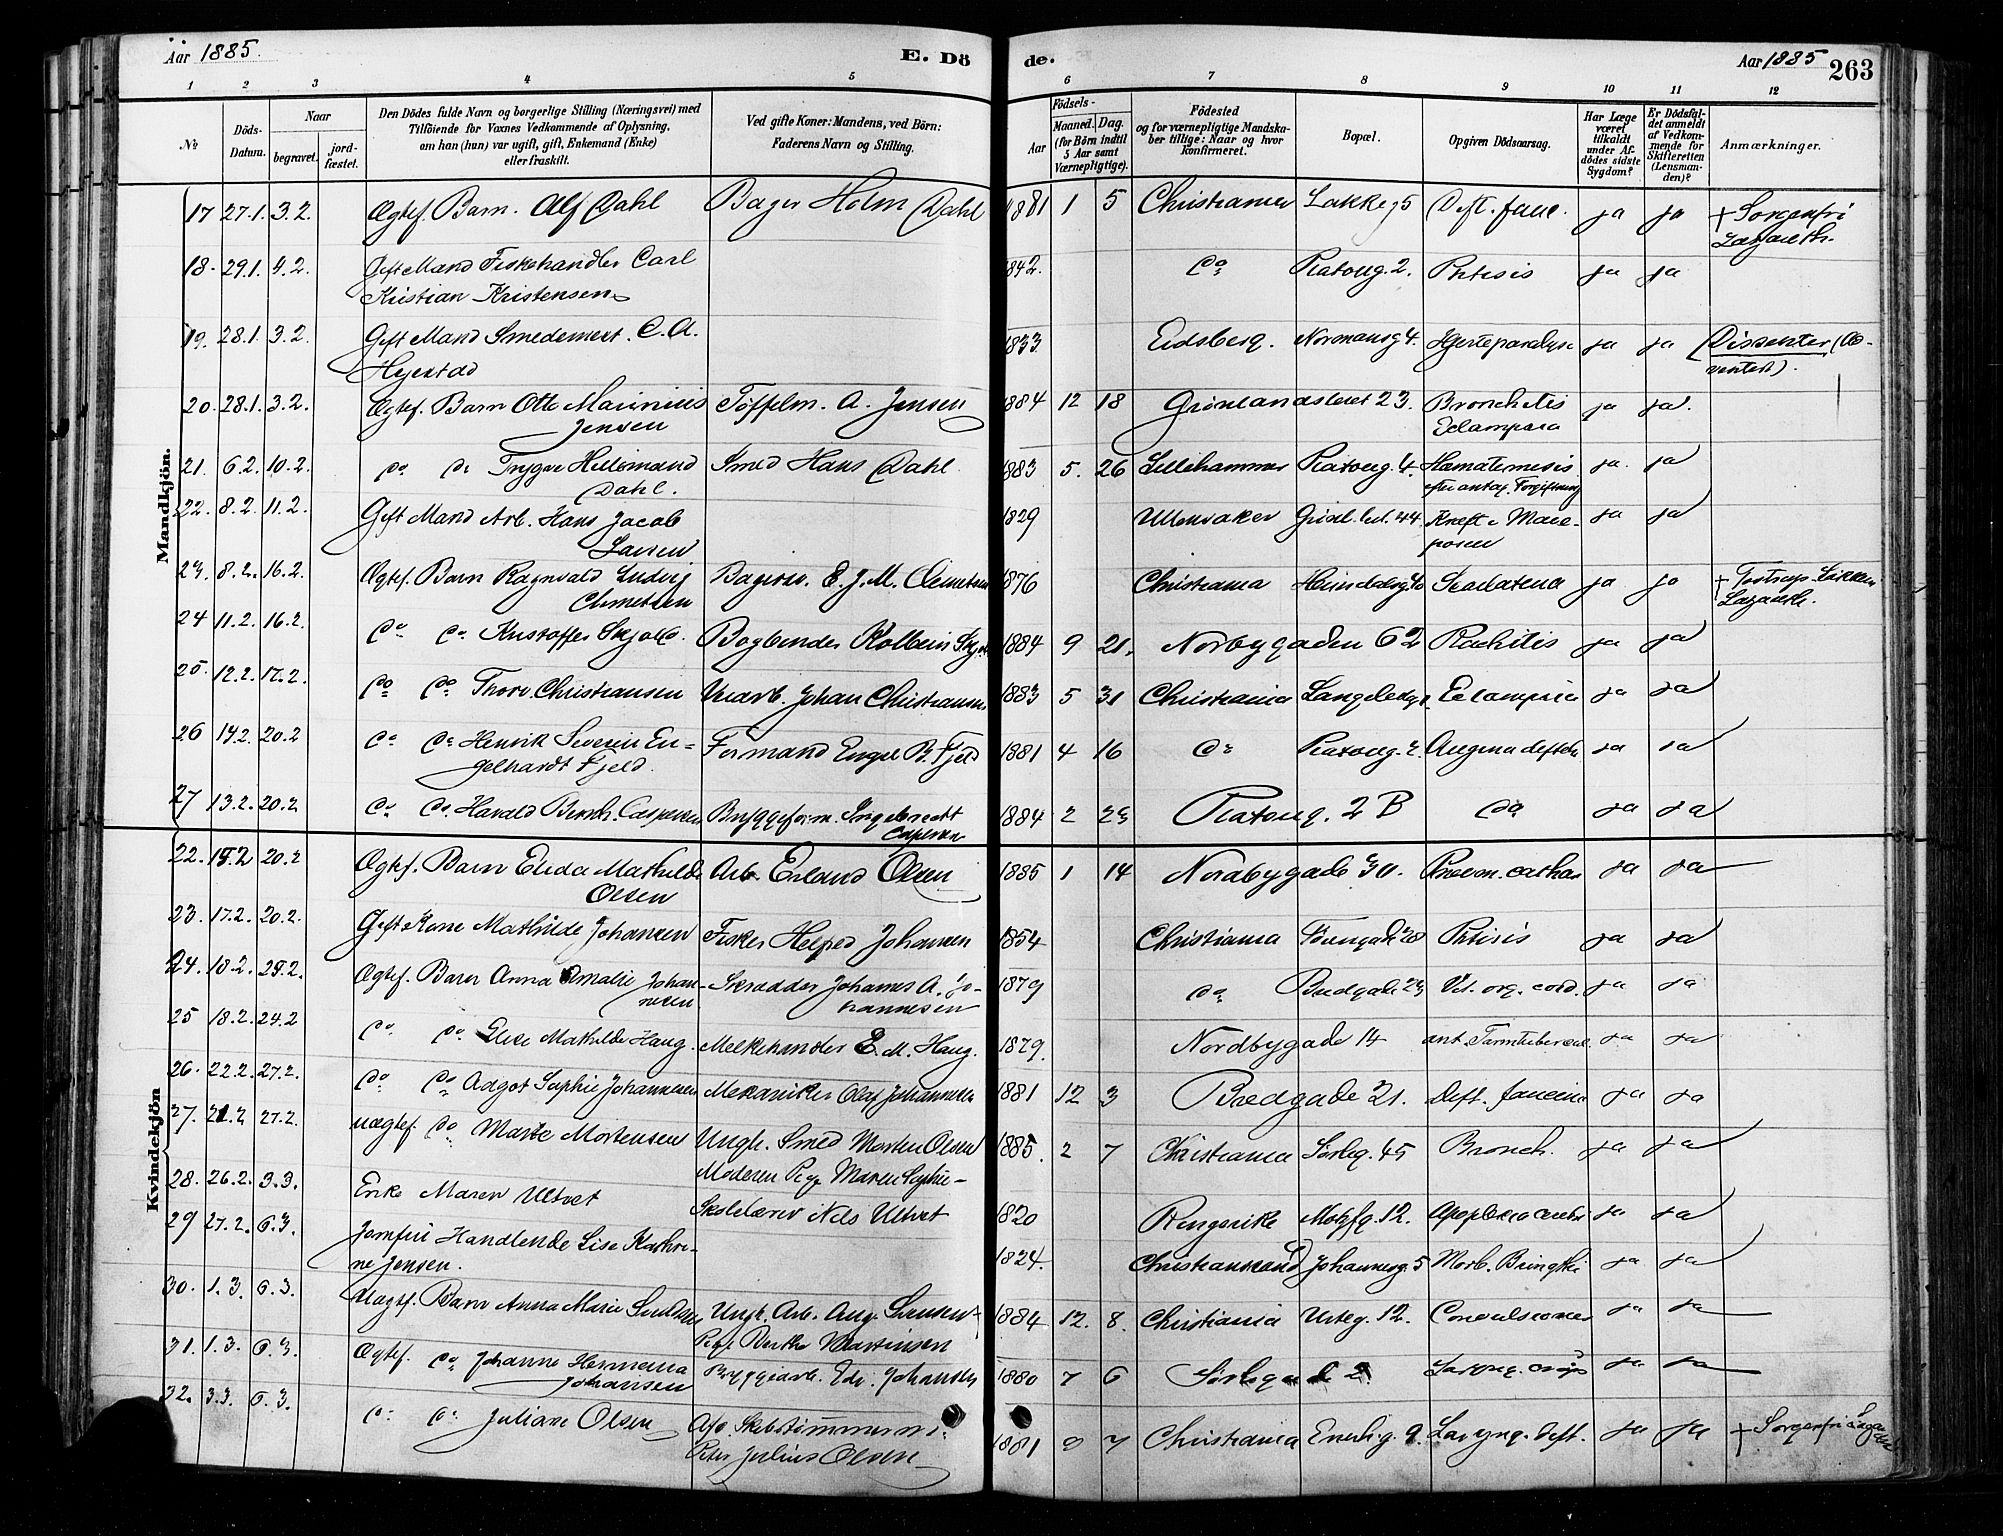 Aar 1885.
E. Dö
de.
Aar 1885
263
1 2 3 4 5 6 7 8 9 10 11 12
№
Döds-Datum.
Naar
begravet.
jord-fæstet.
Den Dödes fulde Navn og borgerlige Stilling (Næringsvei) med
Tilföiende for Voxnes Vedkommende af Oplysning,
om han (hun) var ugift, gift, Enkemand (Enke)
eller fraskilt.
Ved gifte Koner: Mandens, ved Börn:
Faderens Navn og Stilling.
Födsels-
Aar
Maaned. Dag.
(for Börn indtil
5 Aar samt
Værnepligtige).
Födested
og for værnepligtige Mandska-
ber tillige: Naar og hvor
konfirmeret.
Bopæl.
Opgiven Dödsaarsag.
Har Læge
været
tilkaldt
under Af-
dödes sidste
Sygdom?
Er Dödsfal-
det anmeldt
af Vedkom-
mende for
Skifteretten
(Lensman-
den)?
Anmærkninger.
Mandkjön.
17 27.1. 3.2. Ægtef. Barn. Alf Dahl Bager Holm Dahl 1881 1 5 Christiania Lakkeg 5 Dift. fauc. ja ja + Sorgenfri
Lazareth.
18. 29.1. 4.2. Gift Mand Fiskehandler Carl 1842. Do Platoug. 2. Phtisis ja ja
Kristian Kristensen
19. 28.1. 3.2. Gift Mand Smedemest. C. A. 1833 Eidsberg. Normansg 4. Hjerteparalyse ja ja Dissenter (Ad-
ventist).
20. 28.1. 3.2. Ægtef. Barn Otto Marinius Töffelm. A. Jensen 1884 12 18 Grönlandsleret 23. Bronchitis ja ja.
Jensen Eclampsia
21. 6.2. 10.2. Do Do Trygve Hildemand Smed Hans Dahl. 1883 5. 26 Lillehammer Platoug. 4. Hamatemesis ja. ja
Dahl. efter antag. Forgiftning
22. 8.2. 11.2. Gift Mand Arb. Hans Jacob 1829 Ullensaker Grönl. leret. 44. Kræft i Mave- ja ja
Larsen posen
23. 8.2. 16.2. Ægtef. Barn Ragnvald Ludvig Bagersv. E. J. M. Clemetsen 1876 Christiania Heimdalsg. Scarlatina ja ja + Lakken
Clemetsen Lazareth.
24 11.2. 16.2. Do Do Kristoffer Skjolle. Bogbinder Kolbein 1884 9 21. Norbygaden 62 Rachitis ja ja
25. 12.2. 17.2. Do Do Thorv Christiansen Johan Christiansen 1883 5 31 Christiania Eclampsia ja ja
26 14.2. 20.2 Do Do Henrik Severin En- Formand Engel B. Fjeld 1881 4 16 Do Platoug. 2 Angina ja ja
gelhardt Fjeld.
27 13.2. 20.2 Do Do Harald Bernh. Caspersen Bryggeform. Ingebrecht 1884 2 23 Platoug. 2 B Do ja ja
Caspersen
Kvindekjön
22. 15.2 20.2 Ægtef. Barn Elida Mathilde Arb. Erland Olsen 1885 1 14 Nordbygade 30. Pneum. cathar ja ja
Olsen
23. 17.2. 20.2. Gift Kone Mathilde Johansen Fisker Johansen 1854 Christiania 28 Phtisis ja ja
24. 18.2. 25.2. Ægtef. Barn Anna Amalie Johan- Skrædder Johannes A. Jo- 1879 Do Bredgade 23 Vit. org. cord. ja ja
nesen hannesen
25 18.2. 24.2 Do Do Elise Mathilde Haug. Melkehandler E. M. Haug. 1879. Nordbygade 14 ant. Tarmtubercul. ja ja
26. 22.2. 27.2. Do Do Adgot Sophie Johannesen Mekaniker Olaf Johannesen 1881 12 3 Bredgade 21. Dift. faucium ja ja
27. 21.2 27.2. uægtef. Do Marte Mortensen Ungk. Smed Morten Olsen 1885. 2 7 Christiania Sörleg. 45 Bronch. ja ja
Moderen Pige Maren Sophie-
28. 26.2. 3.3. Enke Maren Ultvet Skolelærer Nils Ultvet 1820 Ringerike Motzfg. 12. Apoplexia cerebri ja ja
29 27.2. 6.3. Jomfru Handlende Lise Kathri- 1824. Christianssand Johannesg. 5 Morb. Brightii ja ja
ne Jensen.
30. 1.3. 6.3. Uægtf. Barn Anna Marie Ungk. Arb. Aug. 1884 12. 8. Christiania Urteg. 12. Convulsioner ja ja
Pige Berthe Martinsen
31. 1.3. 6.3. Ægtef. Do Johanne Hermana Bryggearb. Edv. Johansen 1880 7 6 Sörlegade 2 Laryng. croup ja ja
Johansen
32. 3.3. 6.3. Do Do Juliane Olsen Afd. Skibstömmerm. 1881 9 7 Christiania Enerh.g. 9. Laryng. dift. ja ja + Sorgenfri Lazareth
Peter Julius Olsen